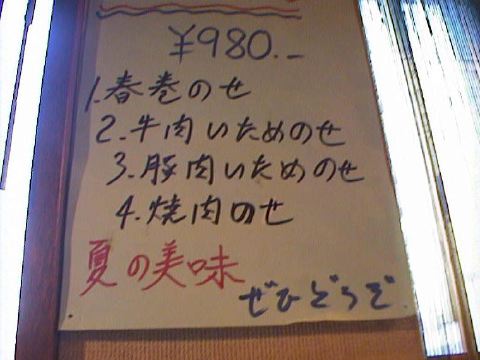 ¥980.–
1.春巻のせ
2.牛肉いためのせ
3.豚肉いためのせ
4.焼肉のせ
夏の美味
ぜひどうぞ.